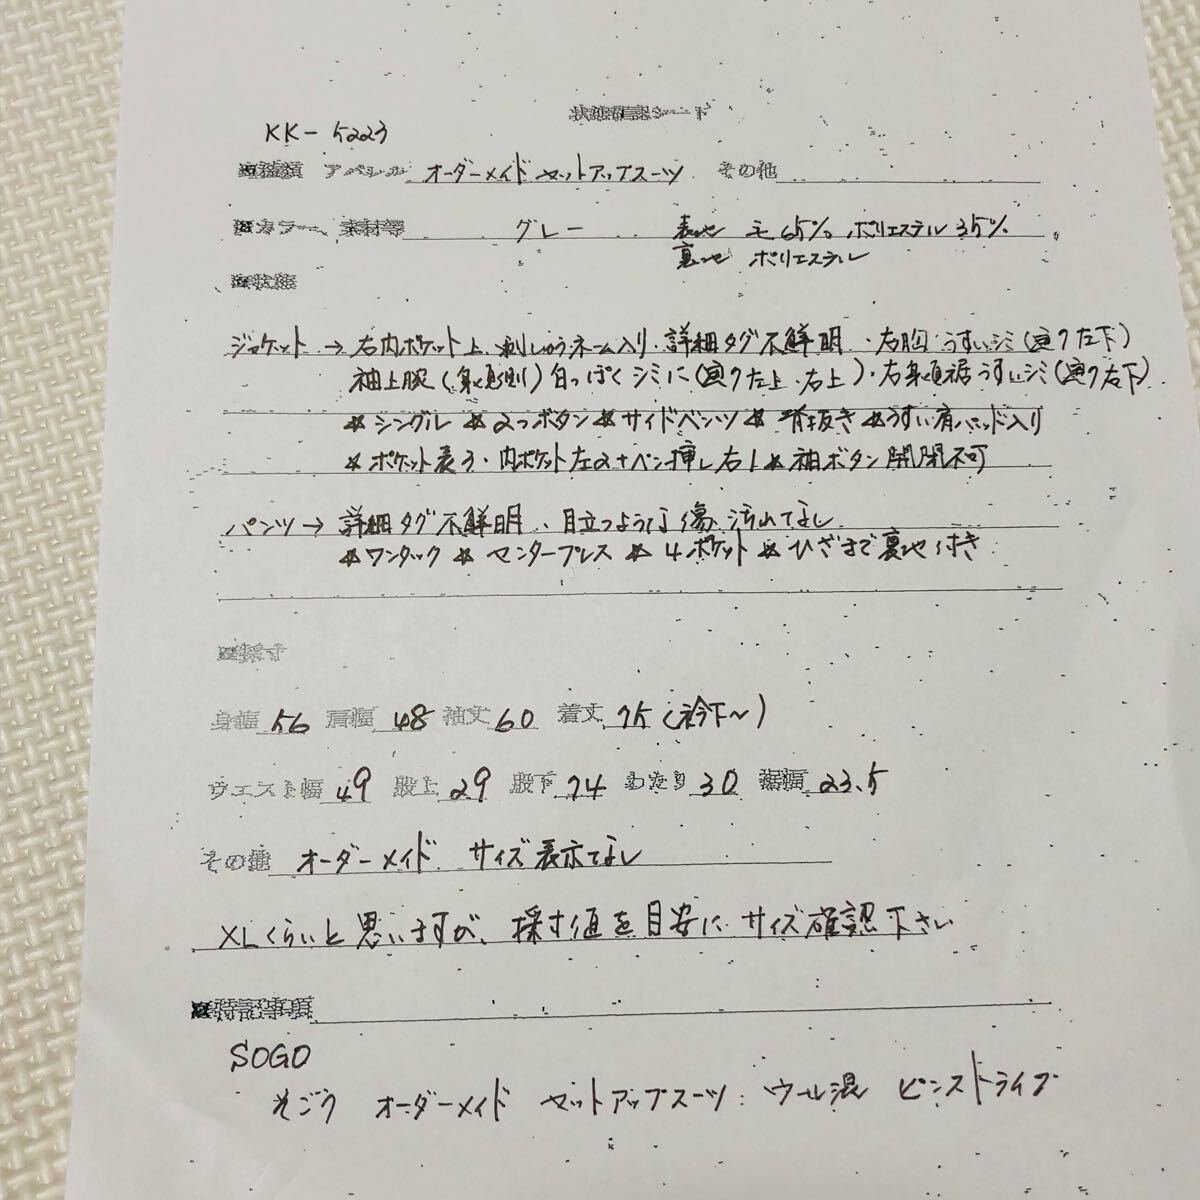 状態確認シート
KK-5223
■種類 アパレル オーダーメイド セットアップスーツ その他
■カラー、素材等 グレー 表地 毛65% ポリエステル35%
裏地 ポリエステル
■状態
ジャケット→右内ポケット上、刺しゅうネーム入り・詳細タグ不鮮明・右胸うすいシミ(画7左下)
袖上腕(身頃側)白っぽくシミに(画7左上・右上)・右身頃裾うすいシミ(画7右下)
☆シングル ☆2つボタン ☆サイドベンツ ☆背抜き ☆うすい肩パッド入り
☆ポケット表3・内ポケット左2+ペン挿し右1 ☆袖ボタン開閉不可
パンツ→詳細タグ不鮮明、目立つような傷汚れてなし
☆ワンタック ☆センタープレス ☆4ポケット ☆ひざまで裏地付き
■採寸
身幅 56 肩幅 48 袖丈 60 着丈 75(衿下~)
ウエスト幅 49 股上 29 股下 74 わたり 30 裾幅 23.5
その他 オーダーメイド サイズ表示なし
XLくらいと思いますが、採寸値を目安にサイズ確認下さい
■特記事項
SOGO
そごう オーダーメイド セットアップスーツ ウール混 ピンストライプ